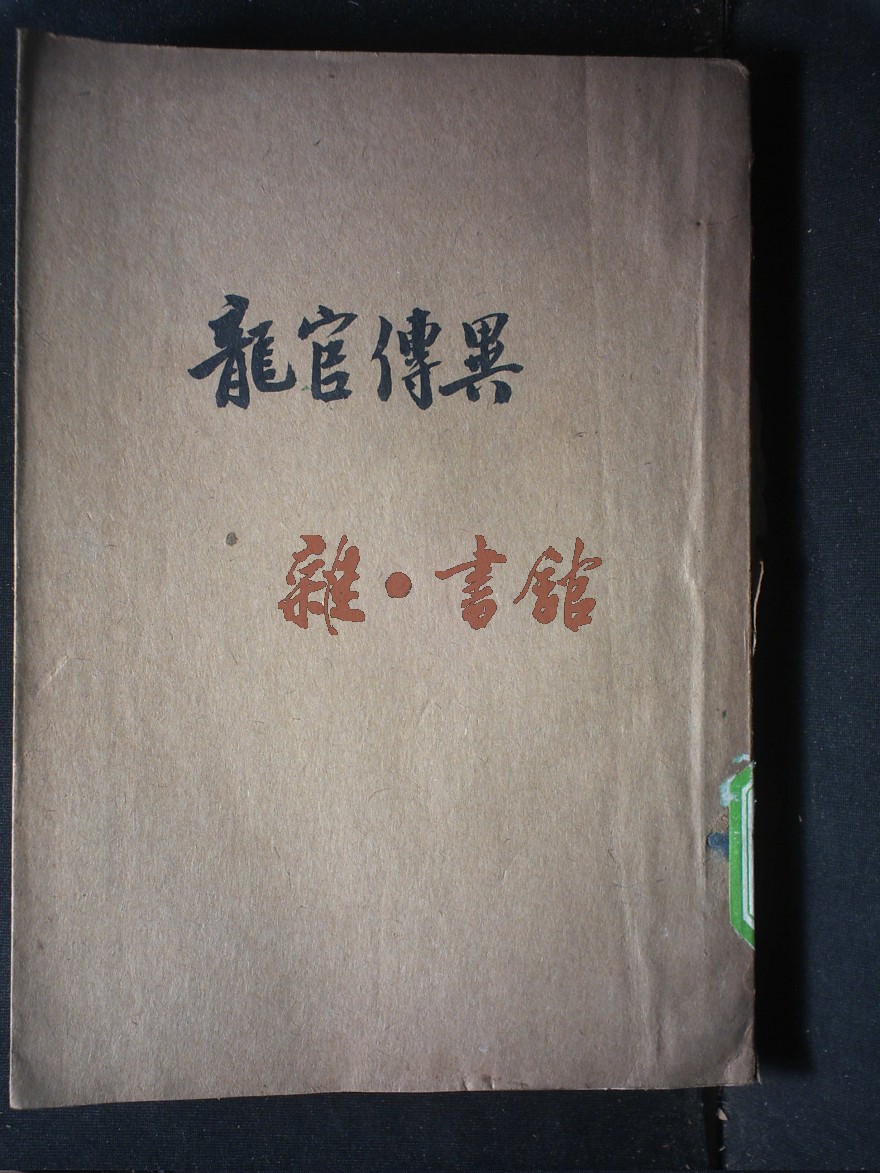 龍官傳異
雜·書館